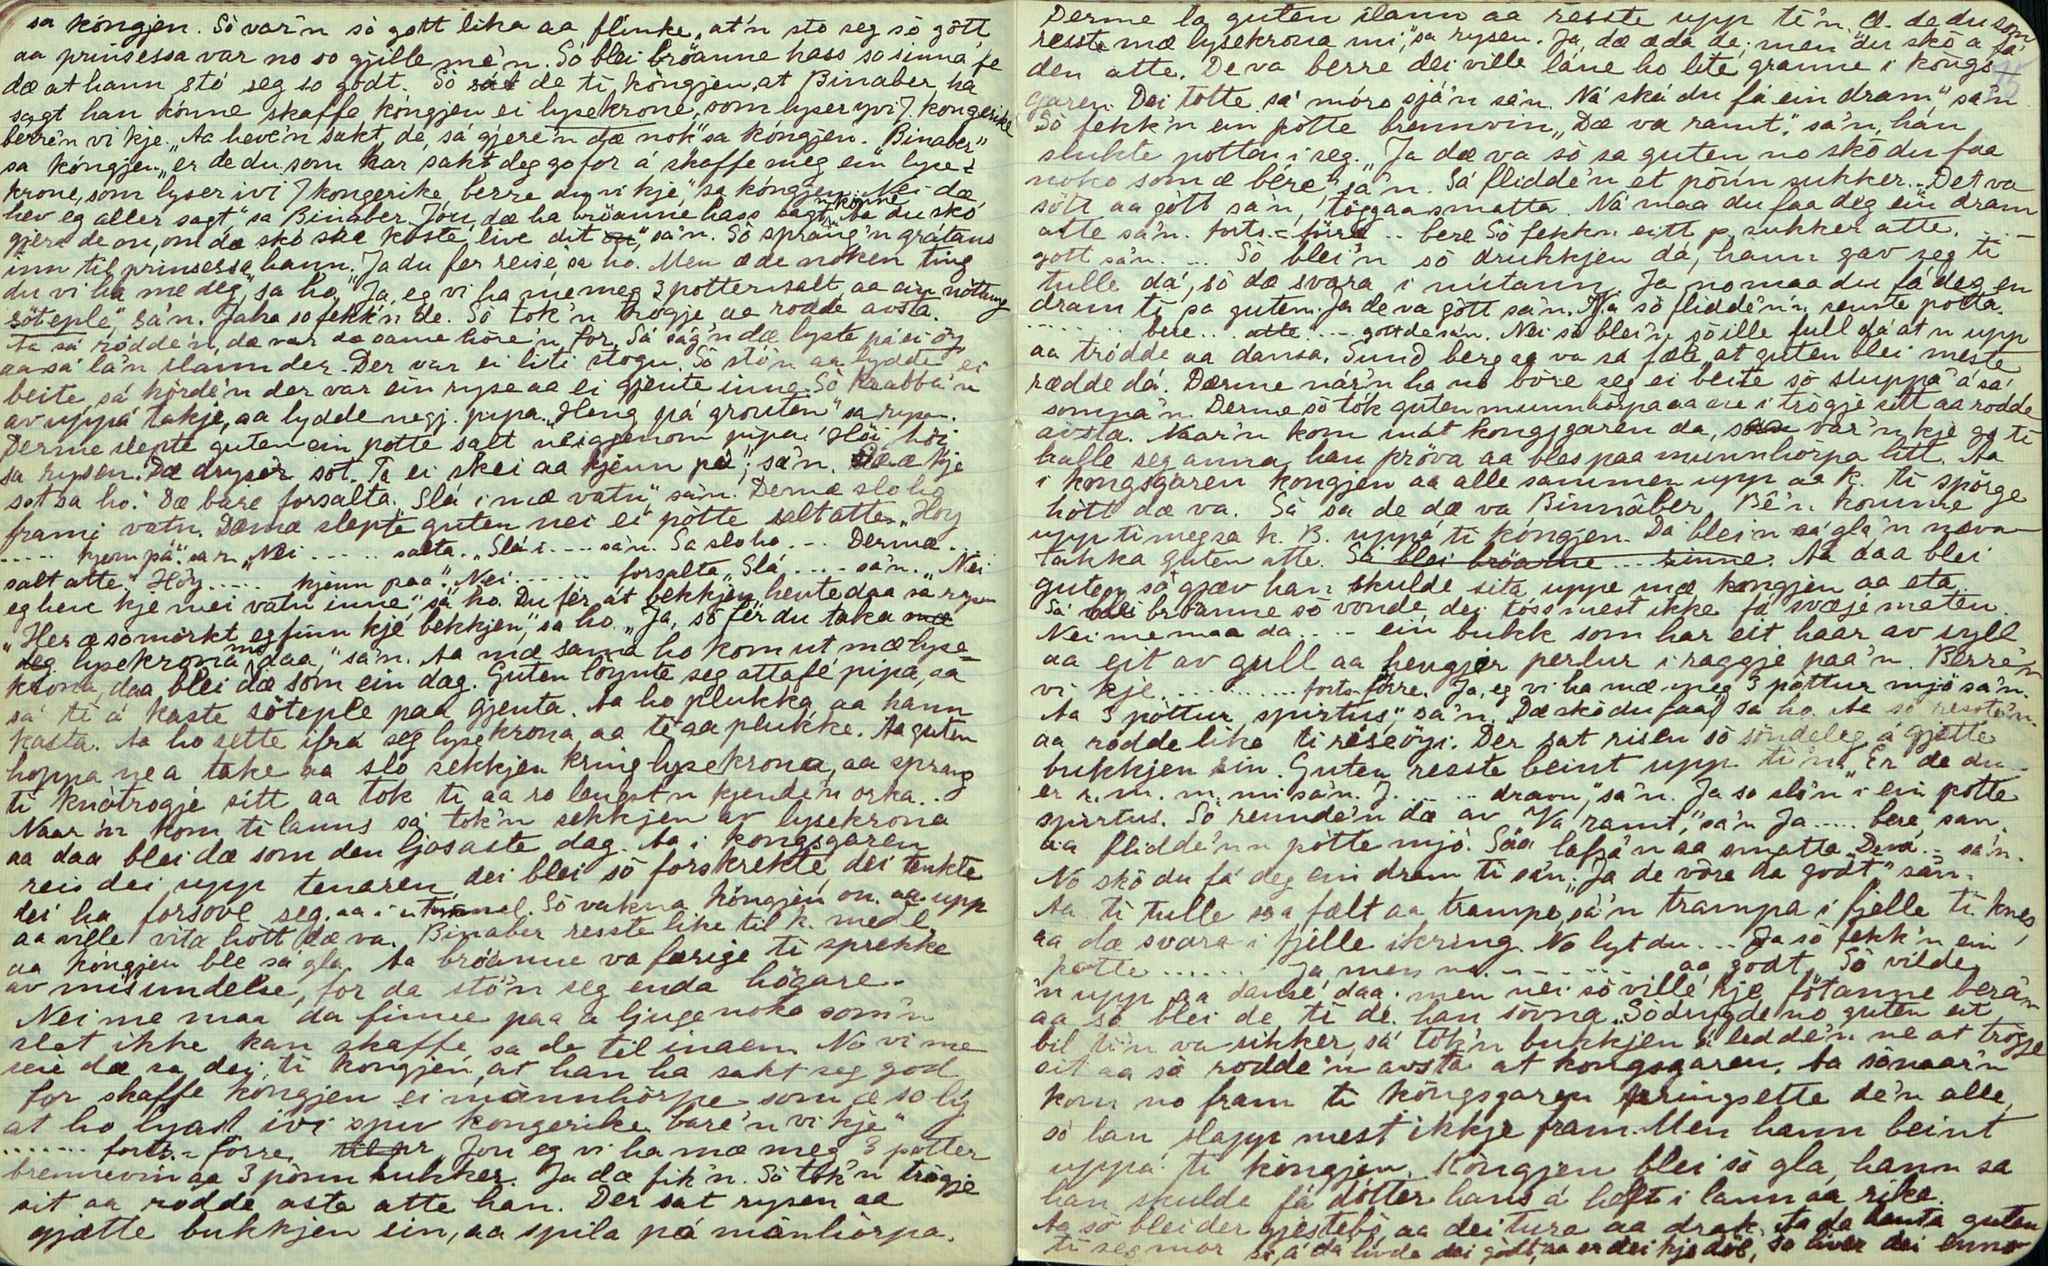 sa kóngjen. Só var'n só gott lika aa flinke, at'n sto seg só gótt
aa prinsessa var no so gjille me'n. Só blei bröanne hass so sinna fe
dæ at hann stó seg so godt. Só sa de ti kóngjen, at Binaber ha
sagt han kónne skaffe kóngjen ei lysekrone, som lyser yvi 7 kongerike
berre'n vi kje. „Aa heve'n sakt de, sá gjere'n dæ nok" sa kóngjen. "Binaber"
sa kóngjen „er de du som har sakt deg go for á skaffe meg ein lyse-
krone, som lyser ivi 7 kongerike berre du vi kje," sa kóngjen. Nei dæ
hev eg aller sagt" sa Binaber. Jóu, dæ ha bröanne hass sagt, 'n kónne. Aa du skó
gjera de ou, om dæ skó ska koste live dit ou", sa'n. Só sprang'n grátans
inn til prinsessa, hann. Ja du fer reise, sa ho. Men æ de noken ting
du vi ha me deg", sa ho. "Ja, eg vi ha me meg 3 potter salt aa ein nóttung
söteple", sa'n. Jaha so fekk'n de. Só tok'n trogje aa rodde avsta.
Aa sá rodde'n, dæ var da same hóre'n for. Sá ság'n dæ lyste pá ei öy,
aa sá la'n ilann der. Der var ei liti stogu. Só stó'n aa lydde ei
beite, sá hörde'n der var ein ryse aa ei gjente inne. Só krabba'n
av uppá takje, aa lydde negj. pipa. „Heng pá grauten" sa rysen.
Derme slepte guten ein potte salt neigjenom pipa. "Höi höi
sa rysen. "Dæ dryser sot. Ta ei skei aa kjenn pá", sa'n. Dæ æ kje
sot sa ho. "Dæ bare forsalta. Slá i mæ vatn" sa'n. Dermæ slo ho
frami vatn. Dæmæ slepte guten nei ei pótte salt atte. „Höy
.... kjenn pá" sa'n. „Nei ..... salta. „Slá i .... sa'n. Sa slo ho ... Dermæ ..
salt atte. „Höy ..... kjenn paa". Nei ..... forsalta „Slá .... sa'n. „Nei
eg heve kje mei vatn inne", sa ho. Du fér át bekkjen, hente daa sa rysen
„Her æ so mörkt, eg finn kje bekkjen", sa ho. „Ja, só fér du taka mæ
deg lysekrona mæ daa," sa'n. Aa mæ sama ho kom ut mæ lyse-
krona, daa blei dæ som ein dag. Guten löynte seg attafé pipa, aa
sá ti á kaste söteple paa gjenta. Aa ho plukka, aa hann
kasta. Aa ho sette ifrá seg lysekrona, aa ti aa plukke. Aa guten
hoppa ne a take aa slo sekkjen kring lysekrona, aa sprang
ti knótrogje sitt aa tok ti aa ro lengst'n kjende'n orka..
Naar'n kom ti lanns sá tok'n sekkjen av lysekrona
aa daa blei dæ som den ljosaste dag. Aa i kongsgaren
reis dei upp tenaren, dei blei só forskrekte, dei tenkte
dei ha forsove seg. aa i Só vakna kóngjen ou. aa. upp
aa ville vitæ hótt dæ va. Binaber resste like til k. med l.
aa kóngjen ble sá gla. Aa bröanne va færige ti sprekke
av misundelse, for da stó'n seg enda högare.
Nei me maa da finne paa a ljuge noko som'n
slet ikke kan skaffe, sa de til inaen. Nó vi me
seie dæ sa dei, ti kóngjen, at han ha sakt seg god
for skaffe kóngjen ei mónnhórpe som æ so ly
at ho lyast ivi sjuv kongerike bare'n vi kje"
....... forts. - förre. Jou eg vi ha mæ meg 3 potter
brennevin aa 3 ponn sukker. Ja dæ fik'n. Só tok'n trógje
sit aa rodde asta atte han. Der sat rysen aa
gjætte bukkjen sin, aa spila pá mónhórpa.
Derme la guten ilann aa resste upp ti'n. Æ de du som
resste mæ lysekrona mi", sa rysen. Ja, dæ æ da de, men du skó a fá
den atte. De va berre dei ville láne ho lite granne i kongs-
garen. Dei totte sá móro sjá'n sa'n. Ná ská du fá ein dram", sa'n.
Só fekk'n ein potte brennvin, „Dæ va ramt," sa'n, hán
slukte potten i seg. „Ja dæ va só sa guten no skó du faa
noko som æ bére" sa'n. Sá flidde'n et pónn sukker. „Det va
sött aa gott sa'n, töggaa smatta. Ná maa du faa deg ein dram
atte sa'n. forts. = förre .. bere Só fekk'n eitt p. sukker atte. ...
gott sa'n. ... Só blei'n só drukkjen dá, hann gav seg ti
tulle dá, só dæ svara i nutann. Ja no maa du fá deg en
dram ti sa guten. Ja de va gött sa'n. Ja só flidde'n'n semte potta.
........ bere ... atte .... gott de sa'n. Nei só blei'n só ille full dá at'n upp
aa trödde aa dansa. Sund berg aa va sá fæle, at guten blei meste
rædde dá. Dærme nár'n ha no böre seg ei beite só sluppa'á sá
sompa'n. Derme só tók guten munnhörpa aa ne i trógje sitt aa rodde
avsta. Naar'n kom mót kongsgaren da, só var'n kje go ti
halle seg anna, han próva aa bles paa munnhörpa litt. Aa
i kongsgaren kongjen aa alle sammen upp aa k. ti spörge
hótt dæ va. Sá sa de dæ va Binnáber. Bê'n komme
upp ti meg sa k. B. uppá ti kóngjen. Da blei'n sá gla'n næva-
takka guten atte. Sá blei bröanne .... sinne. Aa daa blei
guten só gjæv han skulde sita uppe mæ kongjen aa eta
Sá blei bröanne só vonde, dei tóss mest ikke fá svæje maten.
Nei me maa da .... ein bukk som har eit haar av syll
aa eit av gull aa hengjer perlur i raggje paa'n. Berre'n
vi kje ............ forts. förre. Ja, eg vi ha mæ meg 3 póttur mjö sa'n.
Aa 3 póttur spirtus", sa'n. Dæ skó du faa, sa ho. Aa só resste'n
aa rodde like ti riseöyi. Der sat risen só söndeleg á gjætte
bukkjen sin. Guten resste beint upp ti'n. Er de du
er r. m. m. mi sa'n. J. .... dram," sa'n. Ja so slö'n i ein potte
spirtus. Só rennde'n dæ av "Va ramt", sa'n Ja ..... bere, san.
aa flidde'nn pótte mjó. Sáá lafsa'n aa smatta „De va ... sa'n.
Nó skó du fá deg ein dram ti sa'n. „Ja de vóre da godt" sa'n.
Aa ti tulle saa fælt aa trampe, sá'n trampa i fjelle ti knes,
aa dæ svara i fjille ikring. No lyt du ... Ja só fekk'n ein
potte ...... ja men no ....... aa godt. Só vilde
'n upp aa danse daa, men nei só ville kje fötanne bera'n
aa so blei de ti de. han sövna. Só drygde no guten eit
bil ti'n va sikker, sá tók'n bukkjen á ledde'n ne at trógje
sit aa só rodde'n avsta at kongsgaren. Aa so naar'n
kom no fram ti kóngsgaren kringsette de'n alle,
só han slapp mest ikkje fram. Men hann beint
uppá ti kóngjen. Kóngjen blei só gla, hann sa
han skulde fá dótter hans á halft i lann aa rike.
Aa só blei der gjestebó, aa dei tura aa drak. Aa da henta guten
ti seg mor si, á da livde dei gódt, aa er dei kje döe, so liver dei enno